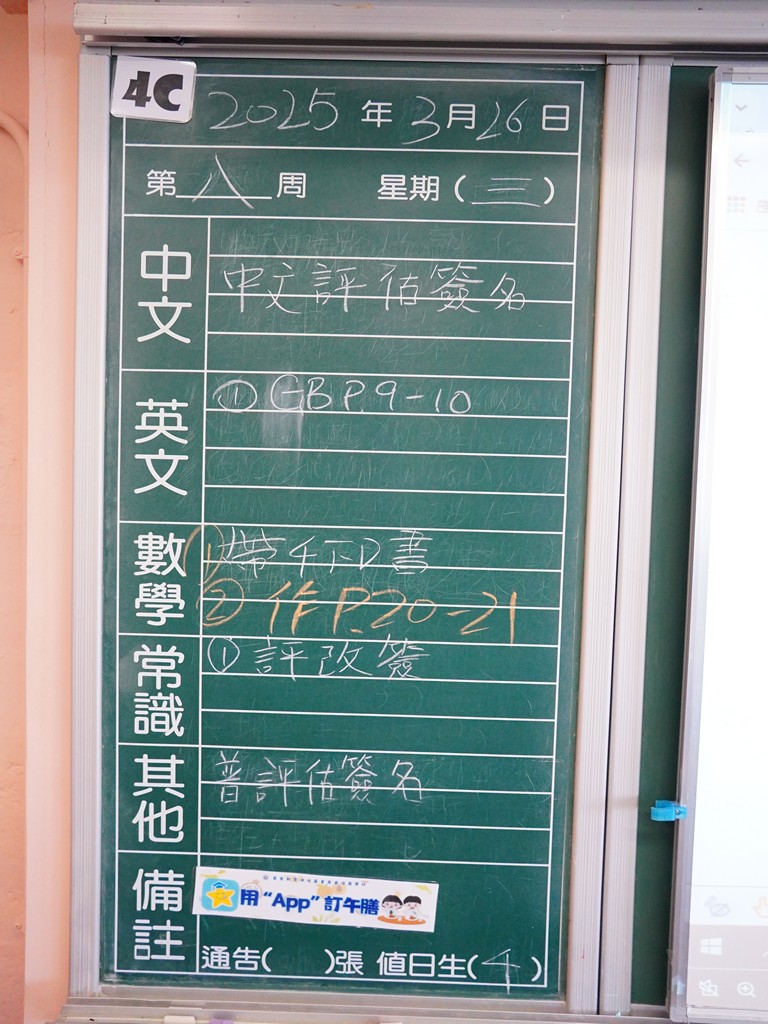 4C
2025年3月26日
第八周 星期(三)
中文
中文評估簽名
英文
①GB P.9-10
數學
①帶4下D書
②作P.20-21
常識
①評改簽
其他
普評估簽名
備註
用“App”訂午膳
通告( )張 值日生(4)